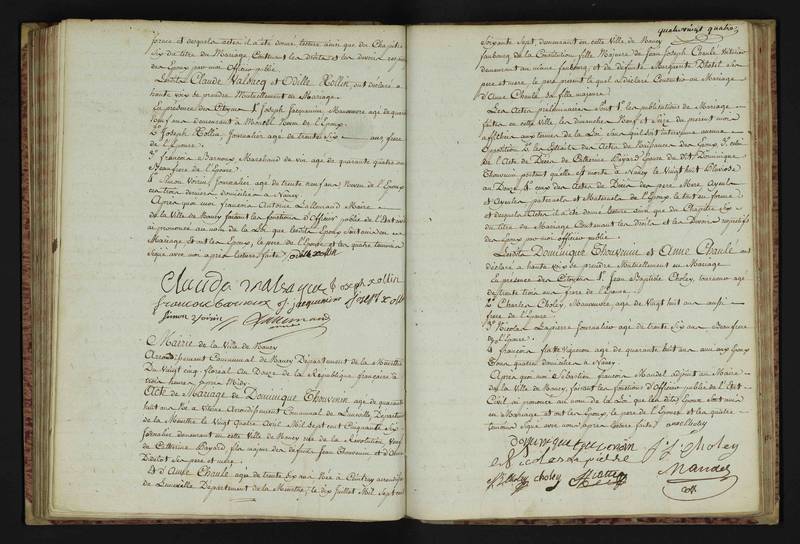 forme et desquels actes il a été donné lecture ainsi que du Chapitre
Six du titre du Mariage, Contenant les droits et les devoirs
des Epoux par moi officier public.
Lesdits Claude Valsacq et Odille Xollin, ont déclaré a
haute voix se prendre Mutuellement en Mariage.
En présence des Citoyens 1° Joseph Jacquemin, Manoeuvre agé de quarante
neuf ans demeurant à Neveu de l'Epoux.
2° Joseph Xollin, Journalier agé de trente Six ans frere
de l'Epouse.
3° françois Barnoux, Marchand de vin agé de quarante quatre ans
Beaufrere de l'Epouse.
4° Simon Voirin, Journalier agé de trente neuf ans Neveu de l'Epoux
les trois derniers domiciliés a Nancy.
Après quoi moi françois Antoine Lallemand Maire
de la Ville de Nancy faisant les fonctions d'officier public de l'Etat civil
ai prononcé au nom de la Loi que lesdits Epoux Sont unis en
Mariage Et ont les Epoux, le pere de l'Epouse et les quatre temoins
Signé avec moi après lecture faite. odille xollin
Claude valsaque joseph xollin
francois barnoux j. jacquemin joseph xollin
Simon voirin Lallemand
Mairie de la Ville de Nancy
Arrondissement Communal de Nancy Département de la Meurthe
Du Vingt cinq floreal an Douze de la Republique française à
trois heures après Midi
Acte de Mariage de Dominique Thouvenin agé de quarante
huit ans Né a Vitrimont Arrondissement Communal de Luneville, Département
de la Meurthe le Vingt Quatre Avril Mil Sept cent Cinquante Six
Journalier demeurant en cette Ville de Nancy rue de la Révolution, Veuf
de Catherine Bayard, fils majeur des defunts Jean Thouvenin et d'Anne
Didelot Ses pere et mere.
Et d'Anne Chaulé, agée de trente Six ans Née à arrondissement
de Luneville Département de la Meurthe, le dix Juillet Mil Sept cent
quatrevingt quatre
Soixante Sept, demeurant en cette Ville de Nancy
faubourg de la Constitution, fille Majeure de Jean Joseph Chaulé
demeurant au même faubourg, et de defunte Marguerite Ses
pere et mere, le pere present lequel a déclaré Consentir au Mariage
d'Anne Chaulé Sa fille majeure.
Les Actes préliminaires Sont 1° les publications de Mariage
faites en cette Ville les dimanches Neuf et Seize du present mois
affichées aux termes de la Loi Sans qu'il Soit intervenu aucune
opposition 2° les Extraits des Actes de Naissances des Epoux, 3° celui
de l'Acte de Decès de Catherine Bayard Epouse dudit Dominique
Thouvenin portant qu'elle est morte à Nancy, le vingt huit Pluviose
an Douze, 4° ceux des Actes de Decès des pere Mere, Ayeuls
et Ayeules paternels et Maternels de l'Epoux, le tout en forme
et desquels Actes il a été donné lecture ainsi que du Chapitre Six
du titre du Mariage Contenant les Droits et les Devoirs respectifs
des Epoux par moi officier public.
Lesdits Dominique Thouvenin et Anne Chaulé ont
déclaré a haute voix Se prendre Mutuellement en Mariage
En présence des Citoyens 1° Jean Baptiste Choley, tourneur agé
de trente trois ans frere de l'Epouse.
2° Charles Choley, Manoeuvre, agé de vingt huit ans aussi
frere de l'Epouse.
3° Nicolas Lapierre Journalier agé de trente Six ans
de l'Epouse.
4° françois agé de quarante huit ans ami des Epoux
tous quatre domiciliés a Nancy.
Après quoi moi Sébastien françois Mandel adjoint au Maire
de la Ville de Nancy, faisant les fonctions d'Officier public de l'Etat
Civil, ai prononcé au nom de la Loi que les dits Epoux Sont unis
en Mariage et ont les Epoux, le pere de l'Epouse et les quatre
temoins Signé avec moi après lecture faite. anne choley
Dominique thouvenin J. J. Choley
Nicolas La pierre Mandel
choley